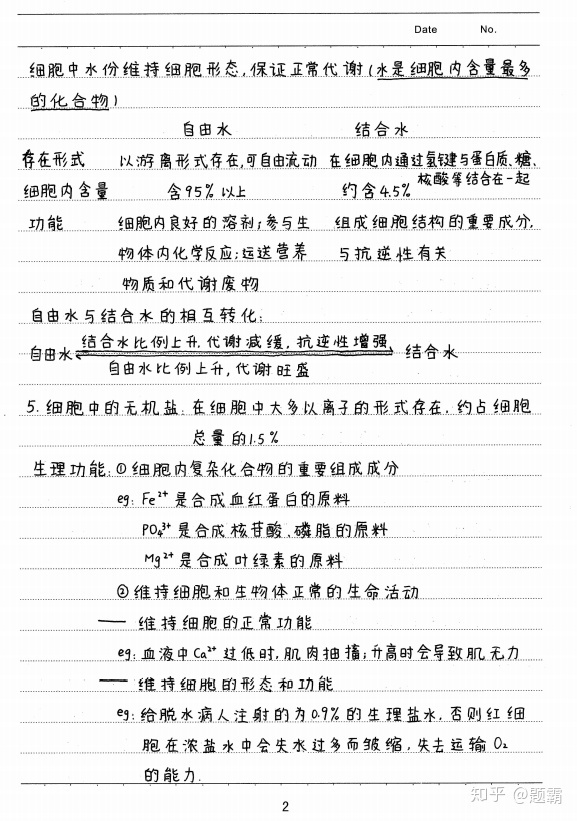 Date No.
细胞中水份维持细胞形态,保证正常代谢(水是细胞内含量最多
的化合物)
自由水 结合水
存在形式 以游离形式存在,可自由流动 在细胞内通过氢键与蛋白质、糖、
核酸等结合在一起
细胞内含量 含95%以上 约含4.5%
功能 细胞内良好的溶剂;参与生 组成细胞结构的重要成分,
物体内化学反应;运送营养 与抗逆性有关
物质和代谢废物
自由水与结合水的相互转化:
结合水比例上升,代谢减缓,抗逆性增强
自由水 结合水
自由水比例上升,代谢旺盛
5.细胞中的无机盐:在细胞中大多以离子的形式存在,约占细胞
总量的1.5%
生理功能:①细胞内复杂化合物的重要组成成分
eg:Fe²⁺是合成血红蛋白的原料
PO₄³⁺是合成核苷酸、磷脂的原料
Mg²⁺是合成叶绿素的原料
②维持细胞和生物体正常的生命活动
— 维持细胞的正常功能
eg:血液中Ca²⁺过低时,肌肉抽搐;升高时会导致肌无力
— 维持细胞的形态和功能
eg:给脱水病人注射的为0.9%的生理盐水,否则红细
胞在浓盐水中会失水过多而皱缩,失去运输O₂
的能力.
知乎 @题霸
2